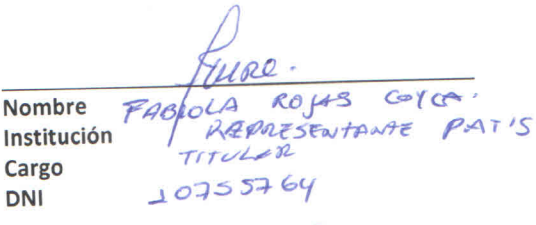 Nombre FABIOLA ROJAS COYCA.
Institución REPRESENTANTE PAT'S
Cargo TITULAR
DNI 10755764